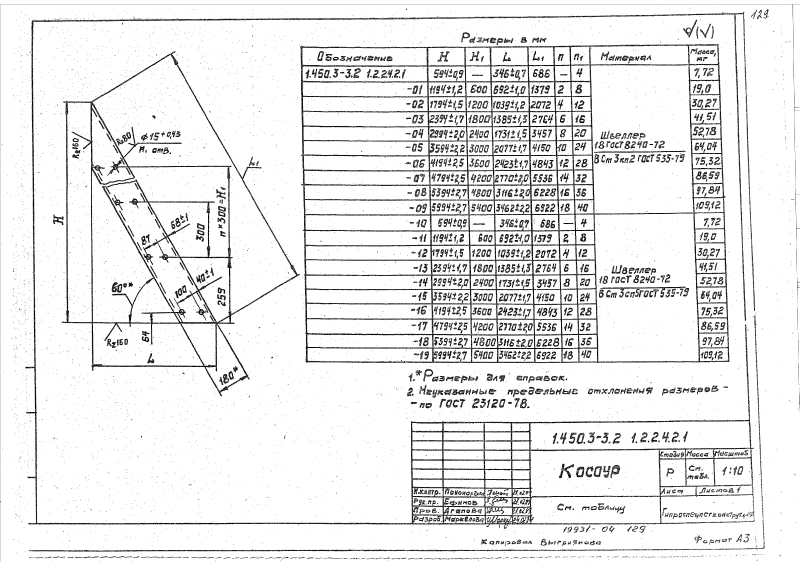 129
√(√)
Размеры в мм
Обозначение H H₁ L L₁ n n₁ Материал Масса, кг
1.450.3-3.2 1.2.2.4.2.1 594±0,9 — 346±0,7 686 — 4 7,72
-01 1194±1,2 600 692±1,0 1379 2 8 19,0
-02 1794±1,5 1200 1039±1,2 2072 4 12 30,27
-03 2394±1,7 1800 1385±1,3 2764 6 16 41,51
-04 2994±2,0 2400 1731±1,5 3457 8 20 52,78
-05 3594±2,2 3000 2077±1,7 4150 10 24 64,04
-06 4194±2,5 3600 2423±1,7 4843 12 28 75,32
-07 4794±2,5 4200 2770±2,0 5536 14 32 86,59
-08 5394±2,7 4800 3116±2,0 6228 16 36 97,84
-09 5994±2,7 5400 3462±2,2 6922 18 40 109,12
Швеллер
18 ГОСТ 8240-72
В Ст 3 кп2 ГОСТ 535-79
-10 594±0,9 — 346±0,7 686 — 4 7,72
-11 1194±1,2 600 692±1,0 1379 2 8 19,0
-12 1794±1,5 1200 1039±1,2 2072 4 12 30,27
-13 2394±1,7 1800 1385±1,3 2764 6 16 41,51
-14 2994±2,0 2400 1731±1,5 3457 8 20 52,78
-15 3594±2,2 3000 2077±1,7 4150 10 24 64,04
-16 4194±2,5 3600 2423±1,7 4843 12 28 75,32
-17 4794±2,5 4200 2770±2,0 5536 14 32 86,59
-18 5394±2,7 4800 3116±2,0 6228 16 36 97,84
-19 5994±2,7 5400 3462±2,2 6922 18 40 109,12
Швеллер
18 ГОСТ 8240-72
В Ст 3 сп5 ГОСТ 535-79
Rz160
Rz80
Ø15+0,43
n₁ отв.
L₁
H
n×300=H₁
300
68±1
87
60°*
100
40±1
259
64
Rz160
L
180*
1.*Размеры для справок.
2. Неуказанные предельные отклонения размеров -
- по ГОСТ 23120-78.
1.450.3-3.2 1.2.2.4.2.1
Косоур
Стадия Масса Масштаб
Р См. табл. 1:10
Лист Листов 1
Н.контр.
Рук.пр. Ефимов
Пров. Агапова
Разраб. Маркелова
См. таблицу
19931-04 129
Копировал Выгриянова
Формат А3